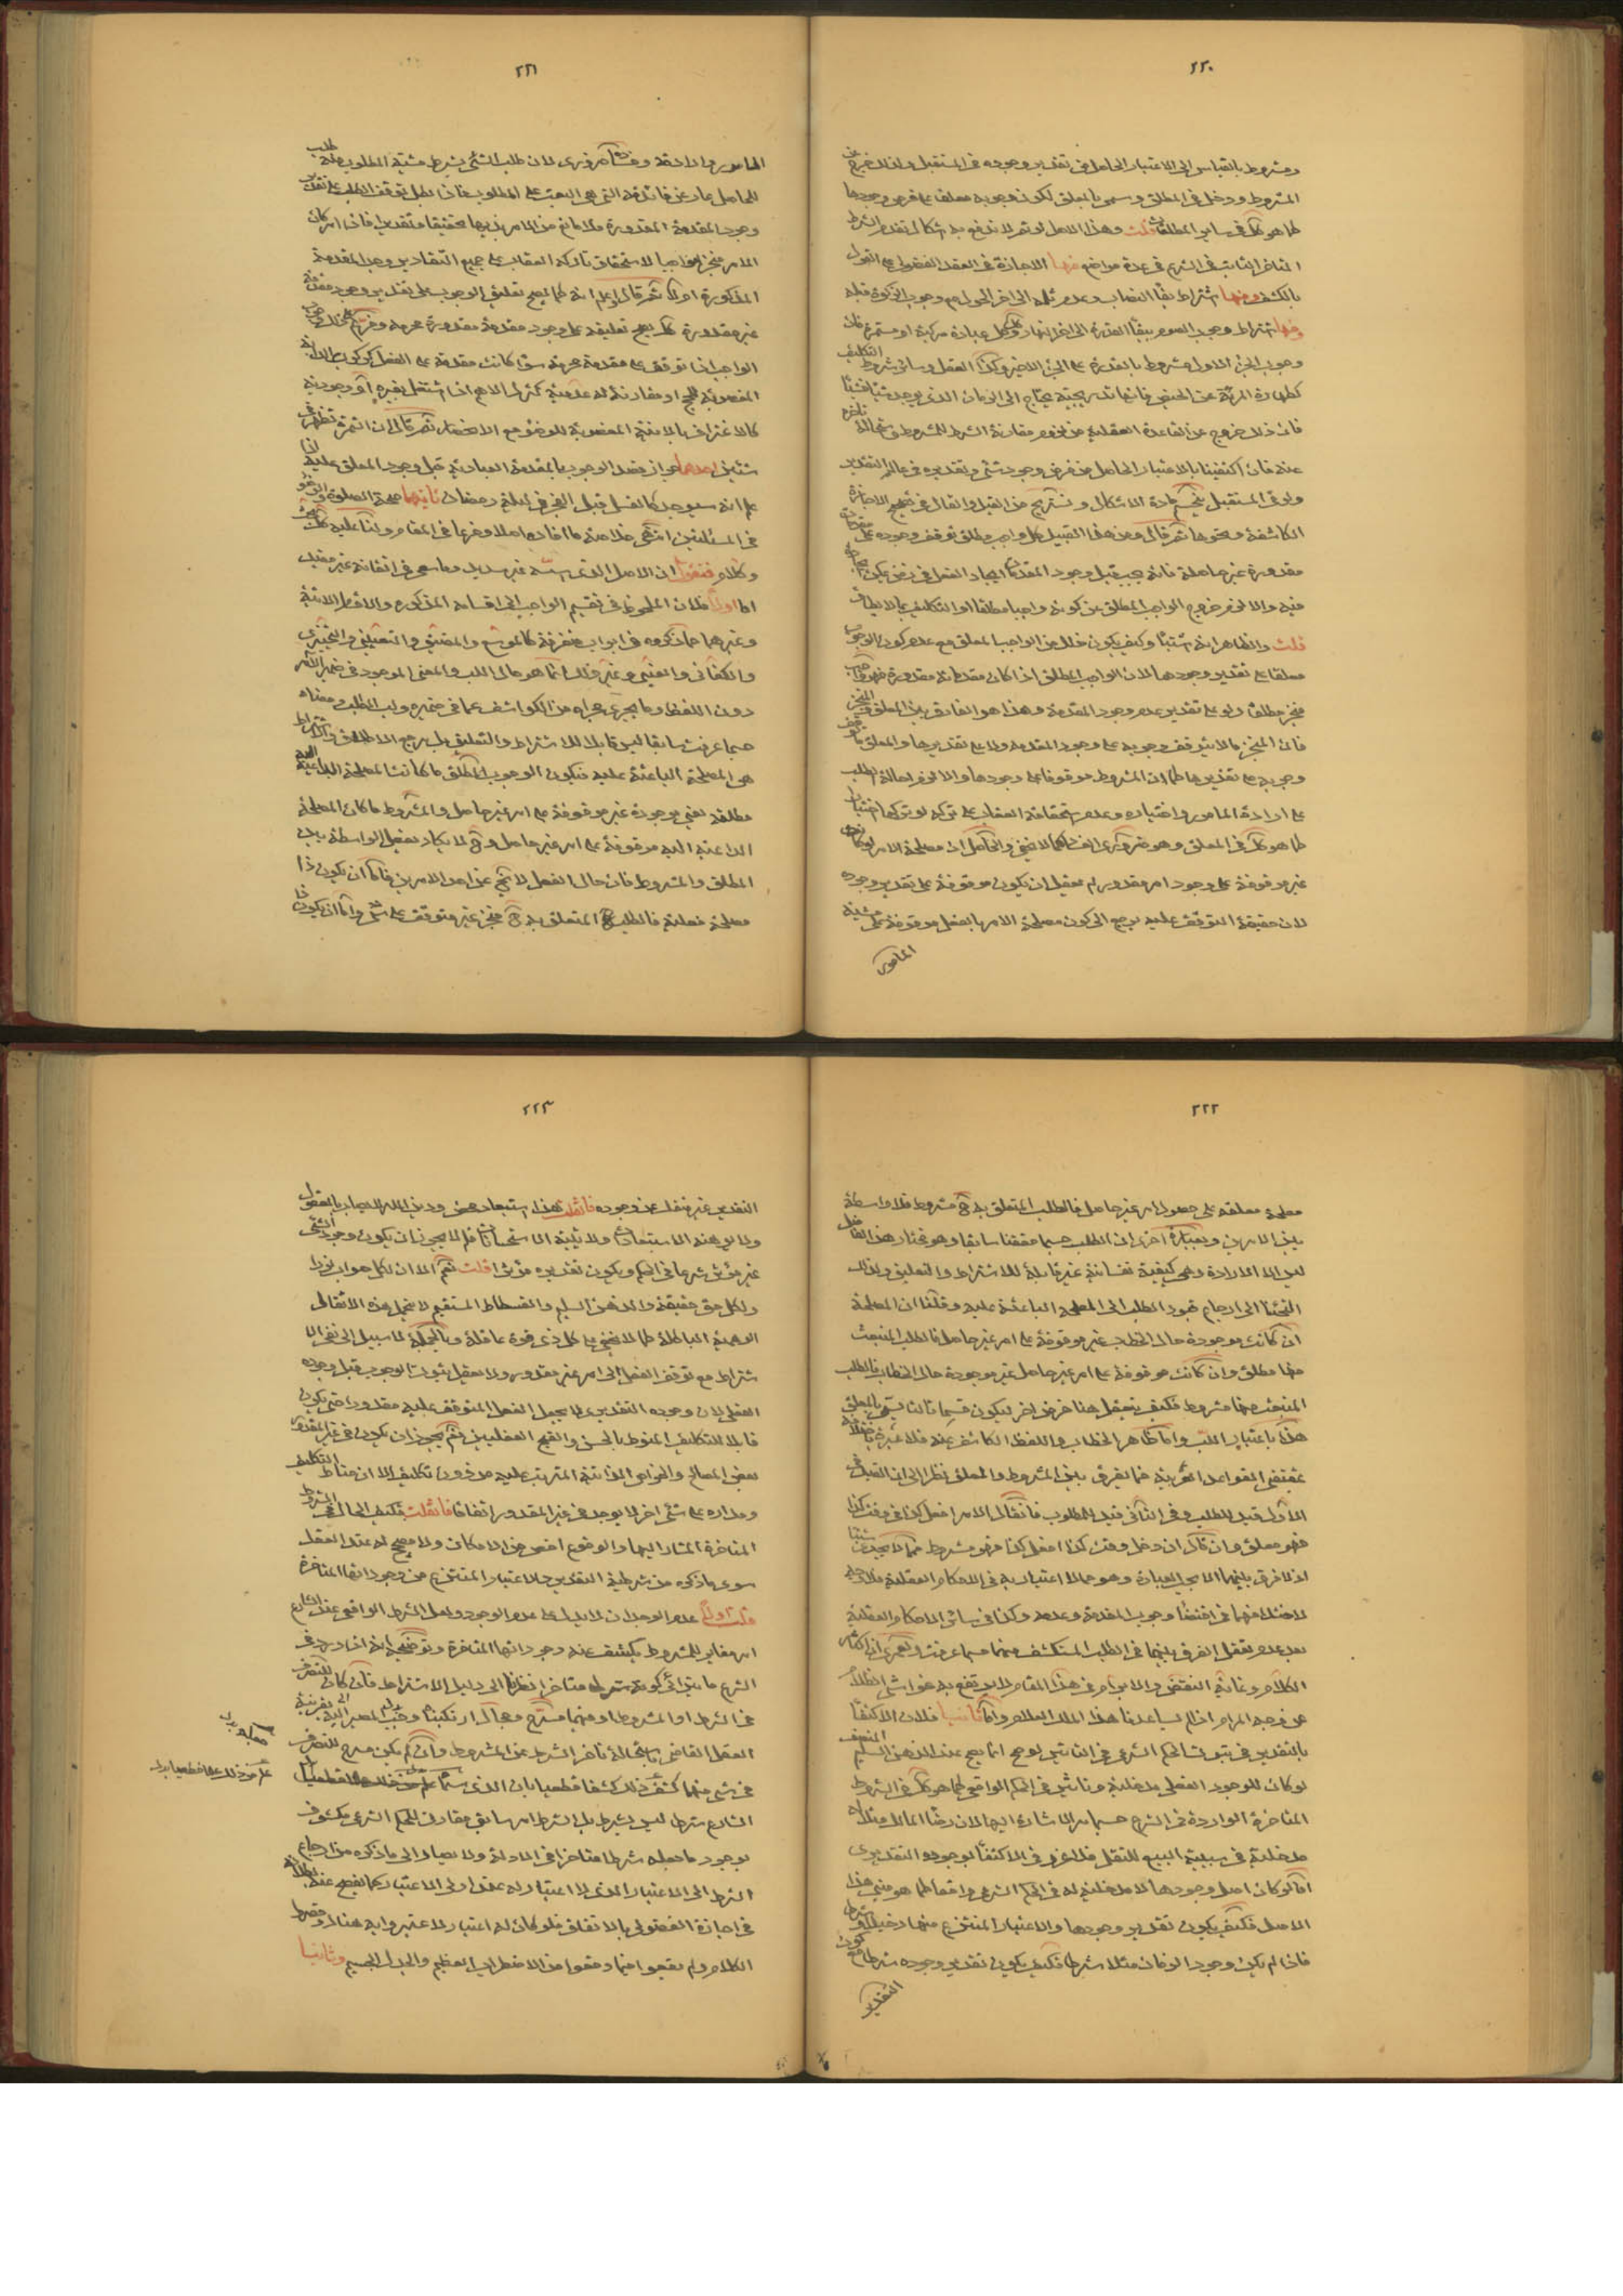 ٢٢٠
ومشروط بالقياس الى الاعتبار الحاصل من تقدير وجوده في المستقبل ولذلك خرج عن
المشروط ودخل في المطلق وسمي بالمعلق لكون وجوبه معلقا على فرض وجودها
كما هو كك في ساير المطلقات قلت وهذا الاصل لو تم لاندفع به اشكال تقدم الشرط
المتاخر الثابت في الشرع في عدة مواضع منها الاجازة في العقد الفضولي على القول
بالكشف ومنها اشتراط بقاء النصاب وعدم ثلمه الى اخر الحول مع وجوب الزكوة قبله
ومنها اشتراط وجوب الصوم ببقاء القدرة الى اخر النهار وكك كل عبادة مركبة او مستمرة فان
وجوب الجزء الاول مشروط بالقدرة على الجزء الاخير وكذا العقل وسائر شروط التكليف
كطهارة المرئة عن الحيض فانها تدريجية يحتاج الى الزمان الذي يوجد شيئا فشيئا
فان ذلك خروج عن القاعدة العقلية من لزوم مقارنة الشرط للمشروط واستحالة تاخره
عنه فان اكتفينا بالاعتبار الحاصل من فرض وجود شئ وتقديره في عالم التقدير
ولو في المستقبل ينحسم مادة الاشكال ونستريح من القيل والقال في تصحيح الاجازة
الكاشفة ونحوها ثم قال ومن هذا القبيل كل واجب مطلق توقف وجوده على مقدمات
مقدورة غير حاصلة فانه يجب قبل وجود المقدمات ايجاد الفعل في زمن يمكن ايجاده
فيه والا لزم خروج الواجب المطلق عن كونه واجبا مطلقا او التكليف بما لا يطاق
قلت والظاهر انه اشتباه وكيف يكون ذلك من الواجب المعلق مع عدم كون الوجوب
معلقا على تقدير وجودها لان الواجب المطلق اذا كان مقدماته مقدورة فهو واجب
منجز مطلقا ولو على تقدير عدم وجود المقدمة وهذا هو الفارق بين المعلق والمنجز
فان المنجز ما لا يتوقف وجوبه على وجود المقدمة ولا على تقديرها والمعلق ما توقف
وجوبه على تقديرها كما ان المشروط موقوفا على وجودها والا لزم احالة الطلب
على ارادة المامور واختياره وعدم استحقاقه العقاب على تركه لو تركها اختيارا
كما هو كك في المعلق وهو ضروري الفساد كما لا يخفى والحاصل ان مصلحة الامر لو كانت
غير موقوفة على وجود امر مقدور لم يعقل ان يكون موقوفة على تقدير وجوده
لان حقيقة التوقف عليه يرجع الى كون مصلحة الامر بالفعل موقوفة على مشية
المامور
٢٢١
المامور وارادته وفساده ضروري لان طلب الشئ بشرط مشية المطلوب منه طلب
للحاصل عار عن فائدته التي هي البعث على المطلوب فاذا بطل توقف الطلب على تقدير
وجود المقدمة المقدورة فلا مانع من الامر بذيها تحقيقا وتقديرا فاذا كان
الامر منجزا واجبا لاستحقاق تاركه العقاب على جميع التقادير وجد المقدمة
المذكورة ام لا ثم قال واعلم انه كما يصح تعليق الوجوب على تقدير وجود مقدمة
غير مقدورة كك يصح تعليقه على وجود مقدمة مقدورة محرمة وفرع على ذلك صحة
الواجب اذا توقف على مقدمة محرمة سواء كانت مقدمة على الفعل كركوب الدابة
المغصوبة للحج او مقارنة له عدمية كترك الاهم اذا اشتغل بغيره او وجودية
كالاغتراف بالانية المغصوبة للوضوء مع الانحصار ثم قال ان الثمرة تظهر في
شيئين احدهما جواز قصد الوجوب بالمقدمة العبادية قبل وجود المعلق عليه اذا
علم انه سيوجد كالغسل قبل الفجر في ليلة رمضان ثانيهما صحة الصلوة والوضوء
في المسئلتين انتهى خلاصة ما افاده اصلا وفرعا في المقام ولنا عليه كك بحث
وكلام فنقول ان الاصل الذي اسسه غير سديد وما سعى في اتقانه غير مفيد
اما اولا فلان الملحوظ في تقسيم الواجب الى اقسامه المذكورة والاقسام الاتية
وغيرهما مما ذكروه في ابواب متفرقة كالموسع والمضيق والتعييني والتخييري
والكفائي والعيني وغير ذلك انما هو حال اللب والمعنى الموجود في ضمير الامر
دون اللفظ وما يجري مجراه من الكواشف عما في ضميره ولب الطلب ومعناه
حسبما عرفت سابقا ليس قابلا للاشتراط والتعليق بل مرجع الاطلاق والاشتراط
هو المصلحة الباعثة عليه فيكون الوجوب المطلق ما كانت المصلحة الداعية اليه
مطلقه يعني موجودة غير موقوفة على امر غير حاصل والمشروط ما كان المصلحة
الداعية اليه موقوفة على امر غير حاصل وح لا يكاد يعقل الواسطة بين
المطلق والمشروط فان حال الفعل لا يخ عن احد الامرين فاما ان يكون ذا
مصلحة فعلية فالطلب المتعلق به ح منجز غير متوقف على شئ واما ان يكون ذا
٢٢٢
مصلحة معلقه على حصول امر غير حاصل فالطلب المتعلق به ح مشروط فلا واسطة
بين الامرين وبعبارة اخرى ان الطلب حسبما حققنا سابقا وهو مختار هذا الفاضل
ليس الا الارادة وهي كيفية نفسانية غير قابلة للاشتراط والتعليق ولذلك
التجئنا الى ارجاع قيود الطلب الى المصلحة الباعثة عليه وقلنا ان المصلحة
ان كانت موجودة حال الخطاب غير موقوفة على امر غير حاصل فالطلب المنبعث
منها مطلق وان كانت موقوفة على امر غير حاصل غير موجودة حال الخطاب فالطلب
المنبعث منها مشروط فكيف يتعقل هنا فرض اخر ليكون قسما ثالثا يسمى بالمعلق
هذا باعتبار اللب واما ظاهر الخطاب واللفظ الكاشف عنه فلا عبرة باختلافه
بمقتضى القواعد العربية فما يفرق بين المشروط والمعلق نظرا الى ان القيد في
الاول قيد للطلب وفي الثاني قيد للمطلوب فان قال الامر افعل كذا في وقت كذا
فهو معلق وان قال ان دخل وقت كذا افعل كذا فهو مشروط مما لا يجدي شيئا
اذ لا فرق بينهما الا مجرد العبارة وهو مما لا اعتبار به في الاحكام العقلية فلا وجه
لاختلافهما في اقتضاء وجوب المقدمة وعدمه وكذا في سائر الاحكام العقلية
بعد عدم تعقل الفرق بينهما في الطلب المستكشف منهما حسبما عرفت ولعمري ان اكثار
الكلام وغاية النقض والابرام في هذا المقام لا يرتفع به غواشي الظلام
عن وجه المرام اذا لم يساعدنا هذا الملك العلام واما ثانيا فلان الاكتفاء
بالتقدير في ثبوت الحكم الشرعي في التاثير لو صح انما يصح عند الذهن السليم المنصف
لو كان للوجود الفعلي مدخلية وتاثير في الحكم الواقعي كما هو كك في الشروط
المتاخرة الواردة في الشرع حسبما مر الاشارة اليها لان رضاء المالك مثلا له
مدخلية في سببية البيع للنقل فلا غرو في الاكتفاء بوجوده التقديري
اما لو كان اصل وجودها لا مدخلية له في الحكم الشرعي واقعا كما هو مبنى هذا
الاصل فكيف يكون تقدير وجودها والاعتبار المنتزع منها دخيلا وشرطا
فاذا لم يكن وجود الزمان مثلا شرطا فكيف يكون تقدير وجوده شرطا مع كون
التقدير
٢٢٣
التقدير غير منفك عن وجوده فان قلت هذا استبعاد محض ودين الله لا يصاب بالعقول
ولا بهذه الاستبعادات ولا يثبته الاستحسانات فلم لا يجوز ان يكون وجود الشئ
غير مؤثر شرعا في الحكم ويكون تقديره مؤثرا قلت نعم الا ان لكل جواب نورا
ولكل حق حقيقة والذهن السليم والقسطاس المستقيم لا يتحمل هذه الاثقال
الوهمية الباطلة كما لا يخفى على كل ذي قوة عاقلة وبالجملة لا سبيل الى نفي الا
شتراط مع توقف الفعل الى امر غير مقدور ولا يعقل ثبوت الوجوب قبل وجوده
الفعلي لان وجوده التقديري لا يجعل الفعل المتوقف عليه مقدورا حتى يكون
قابلا للتكليف المنوط بالحسن والقبح العقليين نعم يجوز ان يكون في غير المقدور
بعض المصالح والخواص الذاتية المترتب عليه من دون تكليف الا ان مناط التكليف
ومداره على شئ اخر لا يوجد في غير المقدور اتفاقا فان قلت فكيف الحال في الشروط
المتاخرة المشار اليها والوقوع اخص من الامكان ولا مصحح له عند العقل
سوى ما ذكره من شرطية التقدير والاعتبار المنتزع من وجوداتها المتاخرة
قلت اولا عدم الوجدان لا يدل على عدم الوجود ولعل الشرط الواقعي عند الشارع
امر مغاير للمشروط يكشف عنه وجوداتها المتاخرة وتوضيحه انه اذا ورد في
الشرع ما يترائى كونه شرطا متاخرا نظرا الى دليل الاشتراط فان كان للتصرف
في الشرط او المشروط او فيهما مسرح ومجال ارتكبنا وجب المصير اليه بقرينة
العقل القاضي باستحالة تاخر الشرط عن المشروط وان لم يكن مسرح للتصرف
في شئ منهما كشف ذلك كشفا قطعيا بان الذي
الشارع شرطا ليس بشرط بل الشرط امر سابق مقارن للحكم الشرعي مكشوف
بوجود ما جعله شرطا متاخرا في الادلة ولا يصار الى ما ذكره من ارجاع
الشرط الى الاعتبار الذي لا اعتبار له عند اولي الاعتبار كما يفصح عنه
في اجازة الفضولي بالاتفاق فلو كان له اعتبار لاعتبروا به هنالك وقصروا
الكلام ولم يقعوا فيما وقعوا من الاضطراب العظيم والجدل الجسيم وثانيا